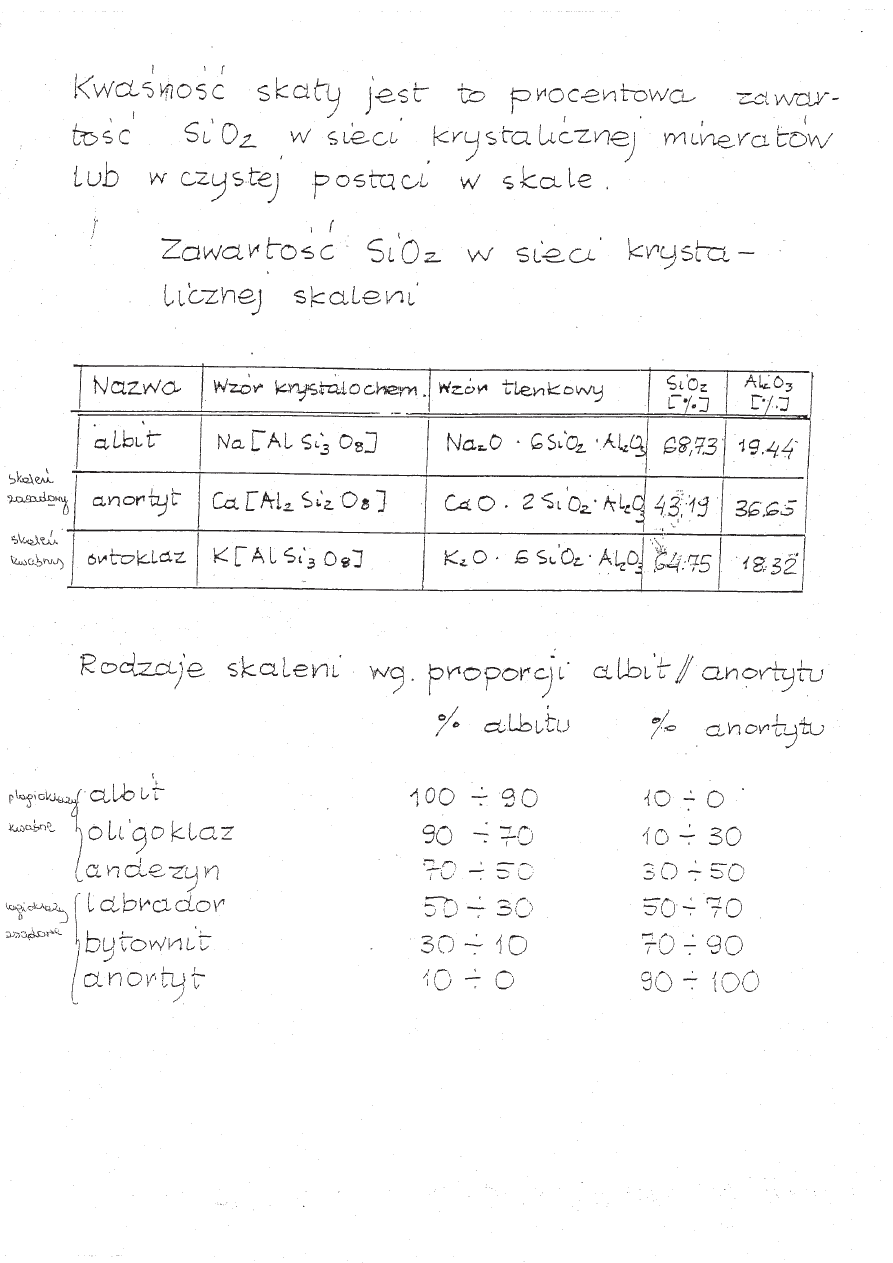 Kwaśność skały jest to procentowa zawar-
tość SiO2 w sieci krystalicznej minerałów
lub w czystej postaci w skale.
Zawartość SiO2 w sieci krysta-
licznej skaleni
Nazwa Wzór krystalochem. Wzór tlenkowy SiO2 [%] Al2O3 [%]
albit Na[AlSi3O8] Na2O · 6SiO2 · Al2O3 68,73 19.44
skaleń zasadowy anortyt Ca[Al2Si2O8] CaO · 2SiO2 · Al2O3 43,19 36,65
skaleń kwaśny ortoklaz K[AlSi3O8] K2O · 6SiO2 · Al2O3 64.75 18.32
Rodzaje skaleni wg. proporcji albit // anortytu
% albitu % anortytu
plagioklazy albit 100 ÷ 90 10 ÷ 0
kwaśne oligoklaz 90 ÷ 70 10 ÷ 30
andezyn 70 ÷ 50 30 ÷ 50
plagioklazy labrador 50 ÷ 30 50 ÷ 70
zasadowe bytownit 30 ÷ 10 70 ÷ 90
anortyt 10 ÷ 0 90 ÷ 100